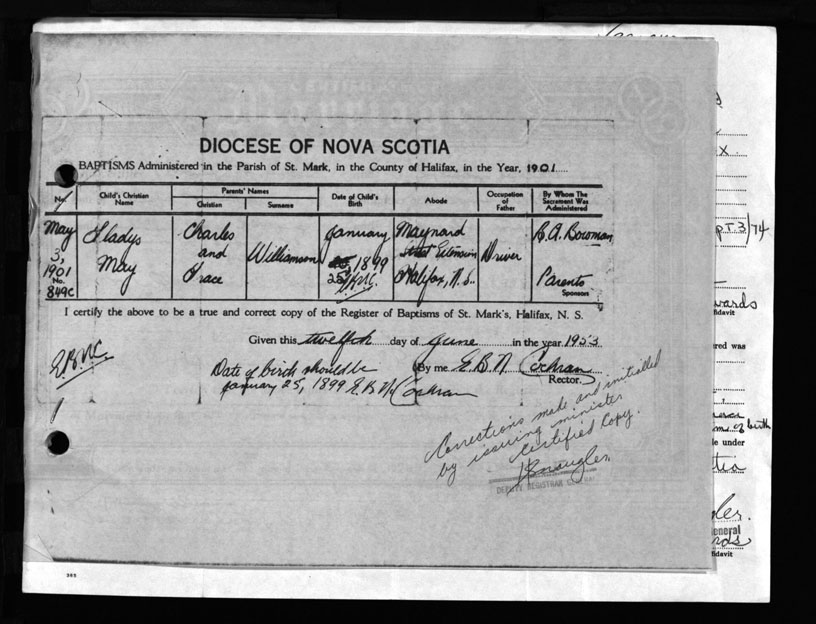 DIOCESE OF NOVA SCOTIA
BAPTISMS Administered in the Parish of St. Mark, in the County of Halifax, in the Year, 1901
No. Child's Christian Name Parents' Names Christian Surname Date of Child's Birth Abode Occupation of Father By Whom The Sacrament Was Administered
May 3, 1901 No. 849c
Gladys May
Charles and Grace
Williamson
January 25 1899 E.B.N.C.
Maynard Street Extension Halifax, N.S.
Driver
R.A. Bowman
Parents
Sponsors
I certify the above to be a true and correct copy of the Register of Baptisms of St. Mark's, Halifax, N. S.
Given this twelfth day of June in the year 1953
E.B.N.C.
By me E. B. N. Cochran
Rector.
Date of birth should be
January 25, 1899 E. B. N. Cochran
Corrections made and initialled
by issuing minister
Certified Copy.
DEPUTY REGISTRAR GENERAL
x.
pt. 3/74
wards
fidavit
ered was
m. of birth
le under
tia
ler.
eneral
rds
fidavit
365